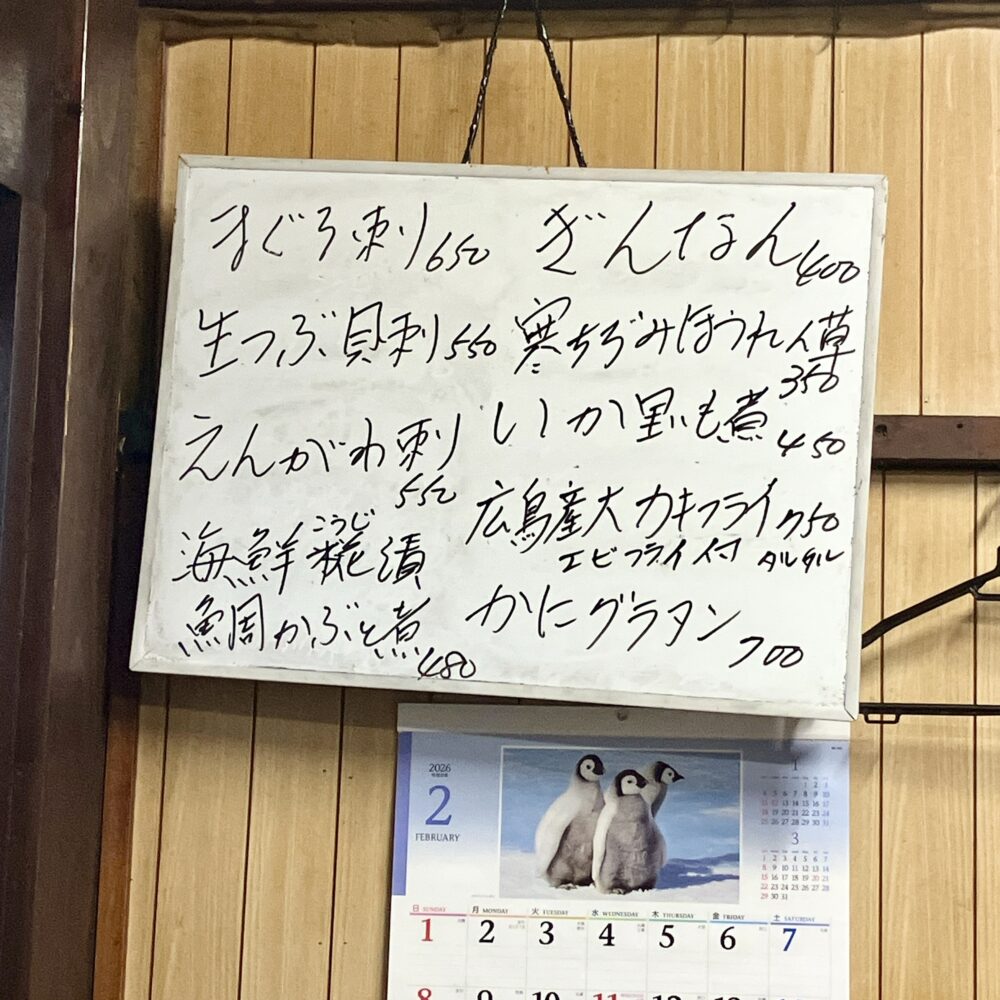 まぐろ刺り650
生つぶ貝刺550
えんがわ刺り
550
こうじ
海鮮糀漬
魚周かぶと煮
480
ぎんなん400
寒ちぢみほうれん草
350
いか墨も煮
450
広島産大カキフライ750
エビフライ付 タルタル
かにグラタン
700
2026
2
FEBRUARY
1
3
日 SUNDAY 月 MONDAY 火 TUESDAY 水 WEDNESDAY 木 THURSDAY 金 FRIDAY 土 SATURDAY
1 2 3 4 5 6 7
8 9 10 11 12 13